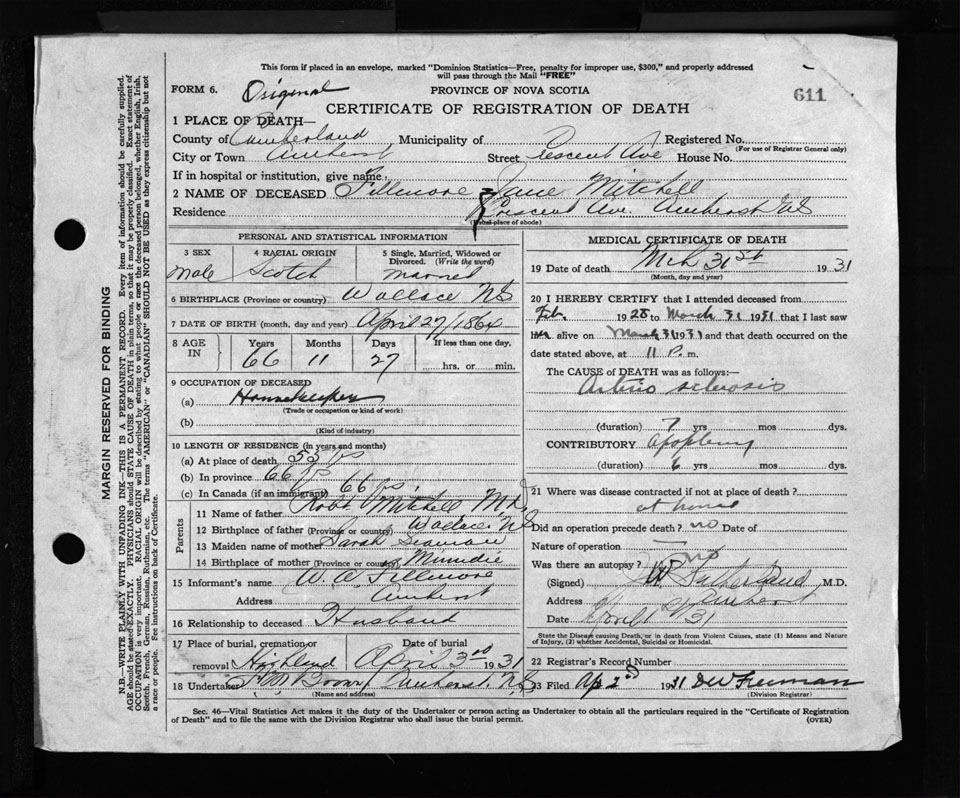 This form if placed in an envelope, marked "Dominion Statistics—Free, penalty for improper use, $300," and properly addressed
will pass through the Mail "FREE"
FORM 6. Original PROVINCE OF NOVA SCOTIA 611
CERTIFICATE OF REGISTRATION OF DEATH
1 PLACE OF DEATH—
County of Cumberland Municipality of Registered No.
(For use of Registrar General only)
City or Town Amherst Street Crescent Ave House No.
If in hospital or institution, give name
2 NAME OF DECEASED Fillmore Jane Mitchell
Residence Crescent Ave. Amherst NS
(Usual place of abode)
PERSONAL AND STATISTICAL INFORMATION
3 SEX 4 RACIAL ORIGIN 5 Single, Married, Widowed or
Divorced. (Write the word)
Male Scotch Married
6 BIRTHPLACE (Province or country) Wallace NS
7 DATE OF BIRTH (month, day and year) April 27/1864
8 AGE IN Years Months Days If less than one day.
66 11 27 hrs. or min.
9 OCCUPATION OF DECEASED
(a) Housekeeper
(Trade or occupation or kind of work)
(b)
(Kind of industry)
10 LENGTH OF RESIDENCE (in years and months)
(a) At place of death 53 yrs
(b) In province 66 yrs
(c) In Canada (if an immigrant) 66 yrs.
Parents
11 Name of father Robt Mitchell M.D.
12 Birthplace of father (Province or country) Wallace NS
13 Maiden name of mother Sarah Seaman
14 Birthplace of mother (Province or country) Minudie
15 Informant's name W. A. Fillmore
Address Amherst
16 Relationship to deceased Husband
17 Place of burial, cremation or removal Highland Date of burial April 3rd 1931
18 Undertaker F M Brown Amherst. N.S.
(Name and address)
MEDICAL CERTIFICATE OF DEATH
19 Date of death Mch 31st 1931
(Month, day and year)
20 I HEREBY CERTIFY that I attended deceased from
Feb. 1928 to March 31 1931 that I last saw
her alive on March 31 1931 and that death occurred on the
date stated above, at 11 P. m.
The CAUSE of DEATH was as follows:—
Arterio sclerosis
(duration) 7 yrs mos dys.
CONTRIBUTORY apoplexy
(duration) 6 yrs mos dys.
21 Where was disease contracted if not at place of death?
at home
Did an operation precede death? no Date of
Nature of operation
Was there an autopsy? no
(Signed) Sutherland M.D.
Address Amherst
Date April 1 31
State the Disease causing Death, or in death from Violent Causes, state (1) Means and Nature of Injury, (2) whether Accidental, Suicidal or Homicidal.
22 Registrar's Record Number
23 Filed Ap 2nd 1931 DW Freeman
(Division Registrar)
Sec. 46—Vital Statistics Act makes it the duty of the Undertaker or person acting as Undertaker to obtain all the particulars required in the "Certificate of Registration
of Death" and to file the same with the Division Registrar who shall issue the burial permit. (OVER)
MARGIN RESERVED FOR BINDING
N.B.—WRITE PLAINLY WITH UNFADING INK—THIS IS A PERMANENT RECORD. Every item of information should be carefully supplied.
AGE should be stated EXACTLY. PHYSICIANS should STATE CAUSE OF DEATH in plain terms, so that it may be properly classified. Exact statement of
OCCUPATION is very important. RACIAL ORIGIN will be described by stating to what people or race the deceased person belonged, whether English, Irish,
Scotch, French, German, Russian, Ruthenian, etc. The terms "AMERICAN" or "CANADIAN" SHOULD NOT BE USED as they express citizenship but not
a race or people. See instructions on back of Certificate.